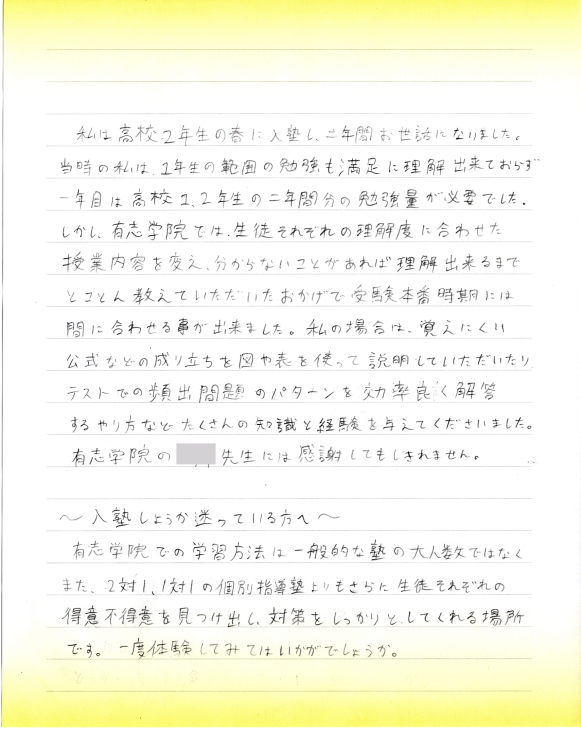 私は高校2年生の春に入塾し、二年間お世話になりました。
当時の私は、1年生の範囲の勉強も満足に理解出来ておらず
一年目は高校1、2年生の二年間分の勉強量が必要でした。
しかし、有志学院では、生徒それぞれの理解度に合わせた
授業内容を変え、分からないことがあれば理解出来るまで
とことん教えていただいたおかげで受験本番時期には
間に合わせる事が出来ました。私の場合は、覚えにくい
公式などの成り立ちを図や表を使って説明していただいたり
テストでの頻出問題のパターンを効率良く解答
するやり方など たくさんの知識と経験を与えてくださいました。
有志学院の 先生には感謝してもしきれません。
〜入塾しようか迷っている方へ〜
有志学院での学習方法は一般的な塾の大人数ではなく
また、2対1、1対1の個別指導塾よりもさらに生徒それぞれの
得意不得意を見つけ出し、対策をしっかりとしてくれる場所
です。一度体験してみてはいかがでしょうか。